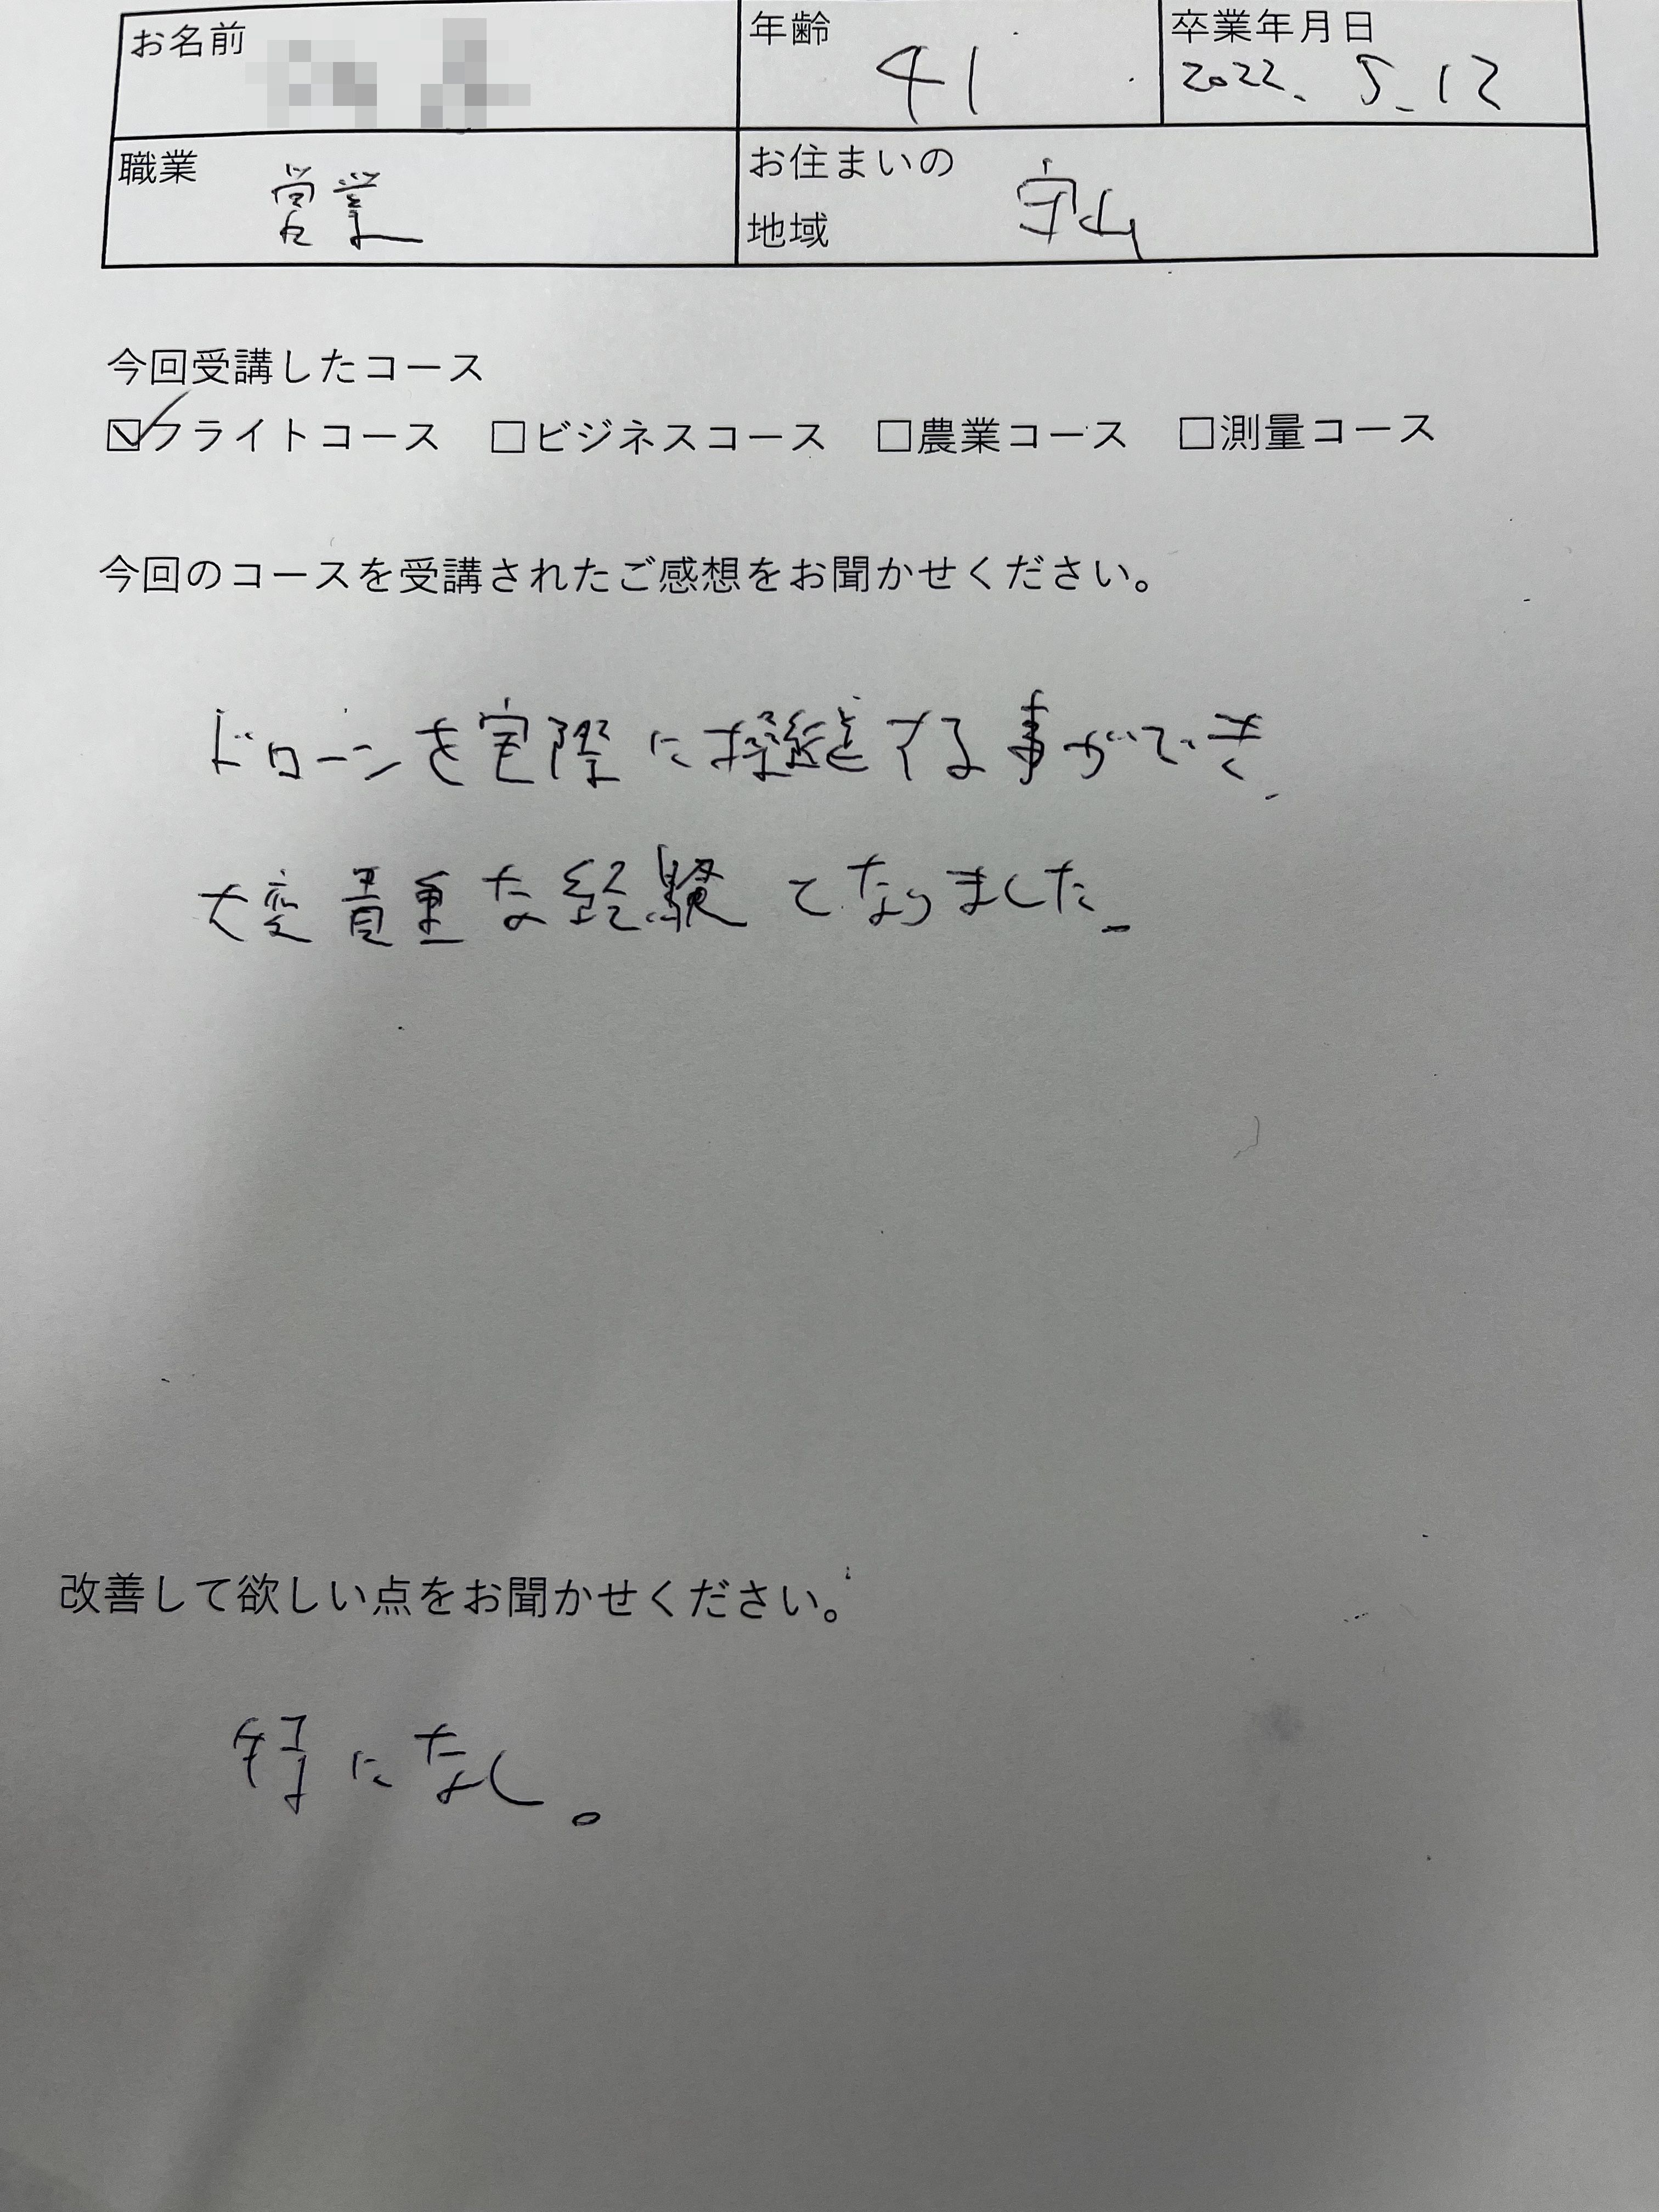 お名前
年齢
41
卒業年月日
2022. 5. 12
職業
営業
お住まいの
地域
守山
今回受講したコース
☑フライトコース □ビジネスコース □農業コース □測量コース
今回のコースを受講されたご感想をお聞かせください。
ドローンを実際に操縦する事ができ、
大変貴重な経験となりました。
改善して欲しい点をお聞かせください。
特になし。